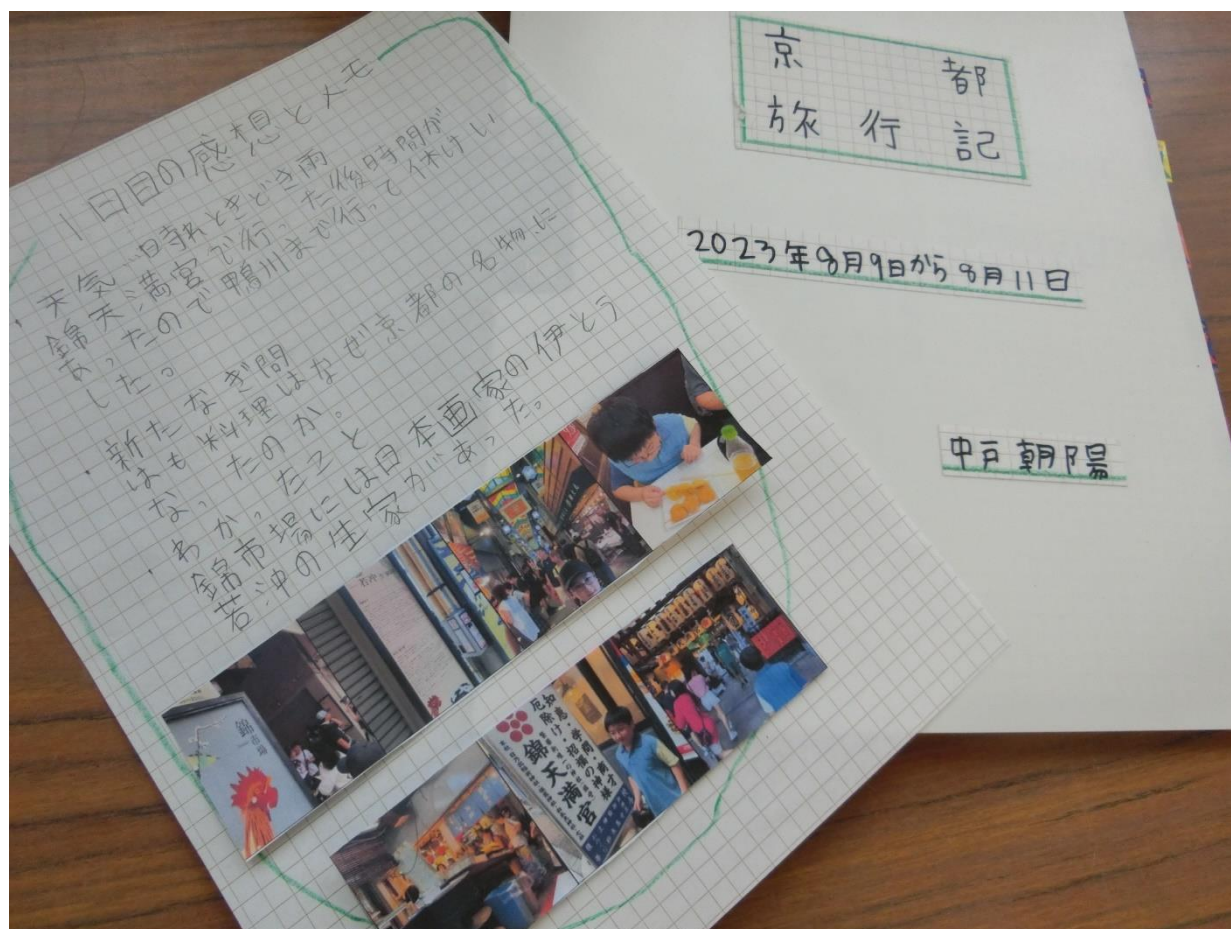 1日目の感想とメモ
・天気…晴れときどき雨
錦天満宮で行った後時間が
あったので鴨川まで行って休けい
した。
・新たなぎ問
はも料理はなぜ京都の名物に
なったのか。
・わかったこと
錦市場には日本画家の伊とう
若冲の生家があった。
錦市場
知恵・学問・商才
厄除け・招福の神様
錦天満宮
京都
旅行記
2023年8月9日から8月11日
中戸朝陽